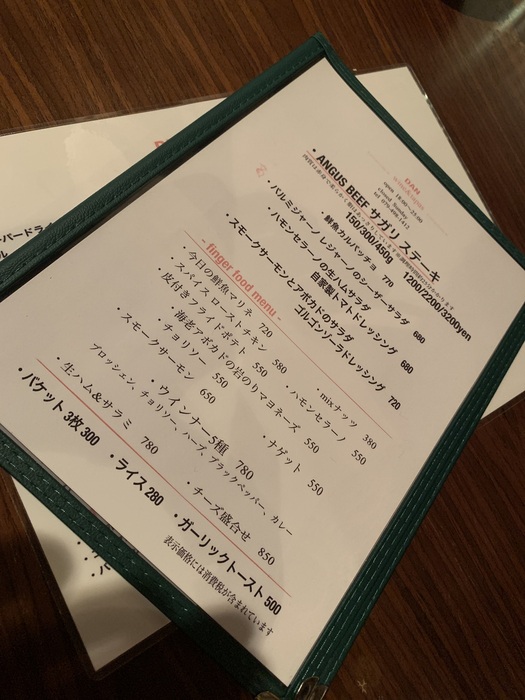 DAN
open 18:00~25:00
closed Sunday
・ANGUS BEEF サガリ ステーキ
150/300/450g 1200/2200/3200yen
・鮮魚カルパッチョ 770
・パルミジャーノレジャーノのシーザーサラダ 680
・ハモンセラーノの生ハムサラダ
自家製トマトドレッシング 680
・スモークサーモンとアボカドのサラダ
ゴルゴンゾーラドレッシング 720
- finger food menu -
・今日の鮮魚マリネ 720
・mixナッツ 380
・スパイス ローストチキン 580
・ハモンセラーノ 550
・皮付きフライドポテト 550
・海老アボカドの岩のりマヨネーズ 550
・チョリソー 550
・ナゲット 550
・スモークサーモン 650
・ウインナー5種 780
プロッシェン、チョリソー、ハーブ、ブラックペッパー、カレー
・生ハム&サラミ 780
・チーズ盛合せ 850
・バケット 3枚 300
・ライス 280
・ガーリックトースト 500
表示価格には消費税が含まれています